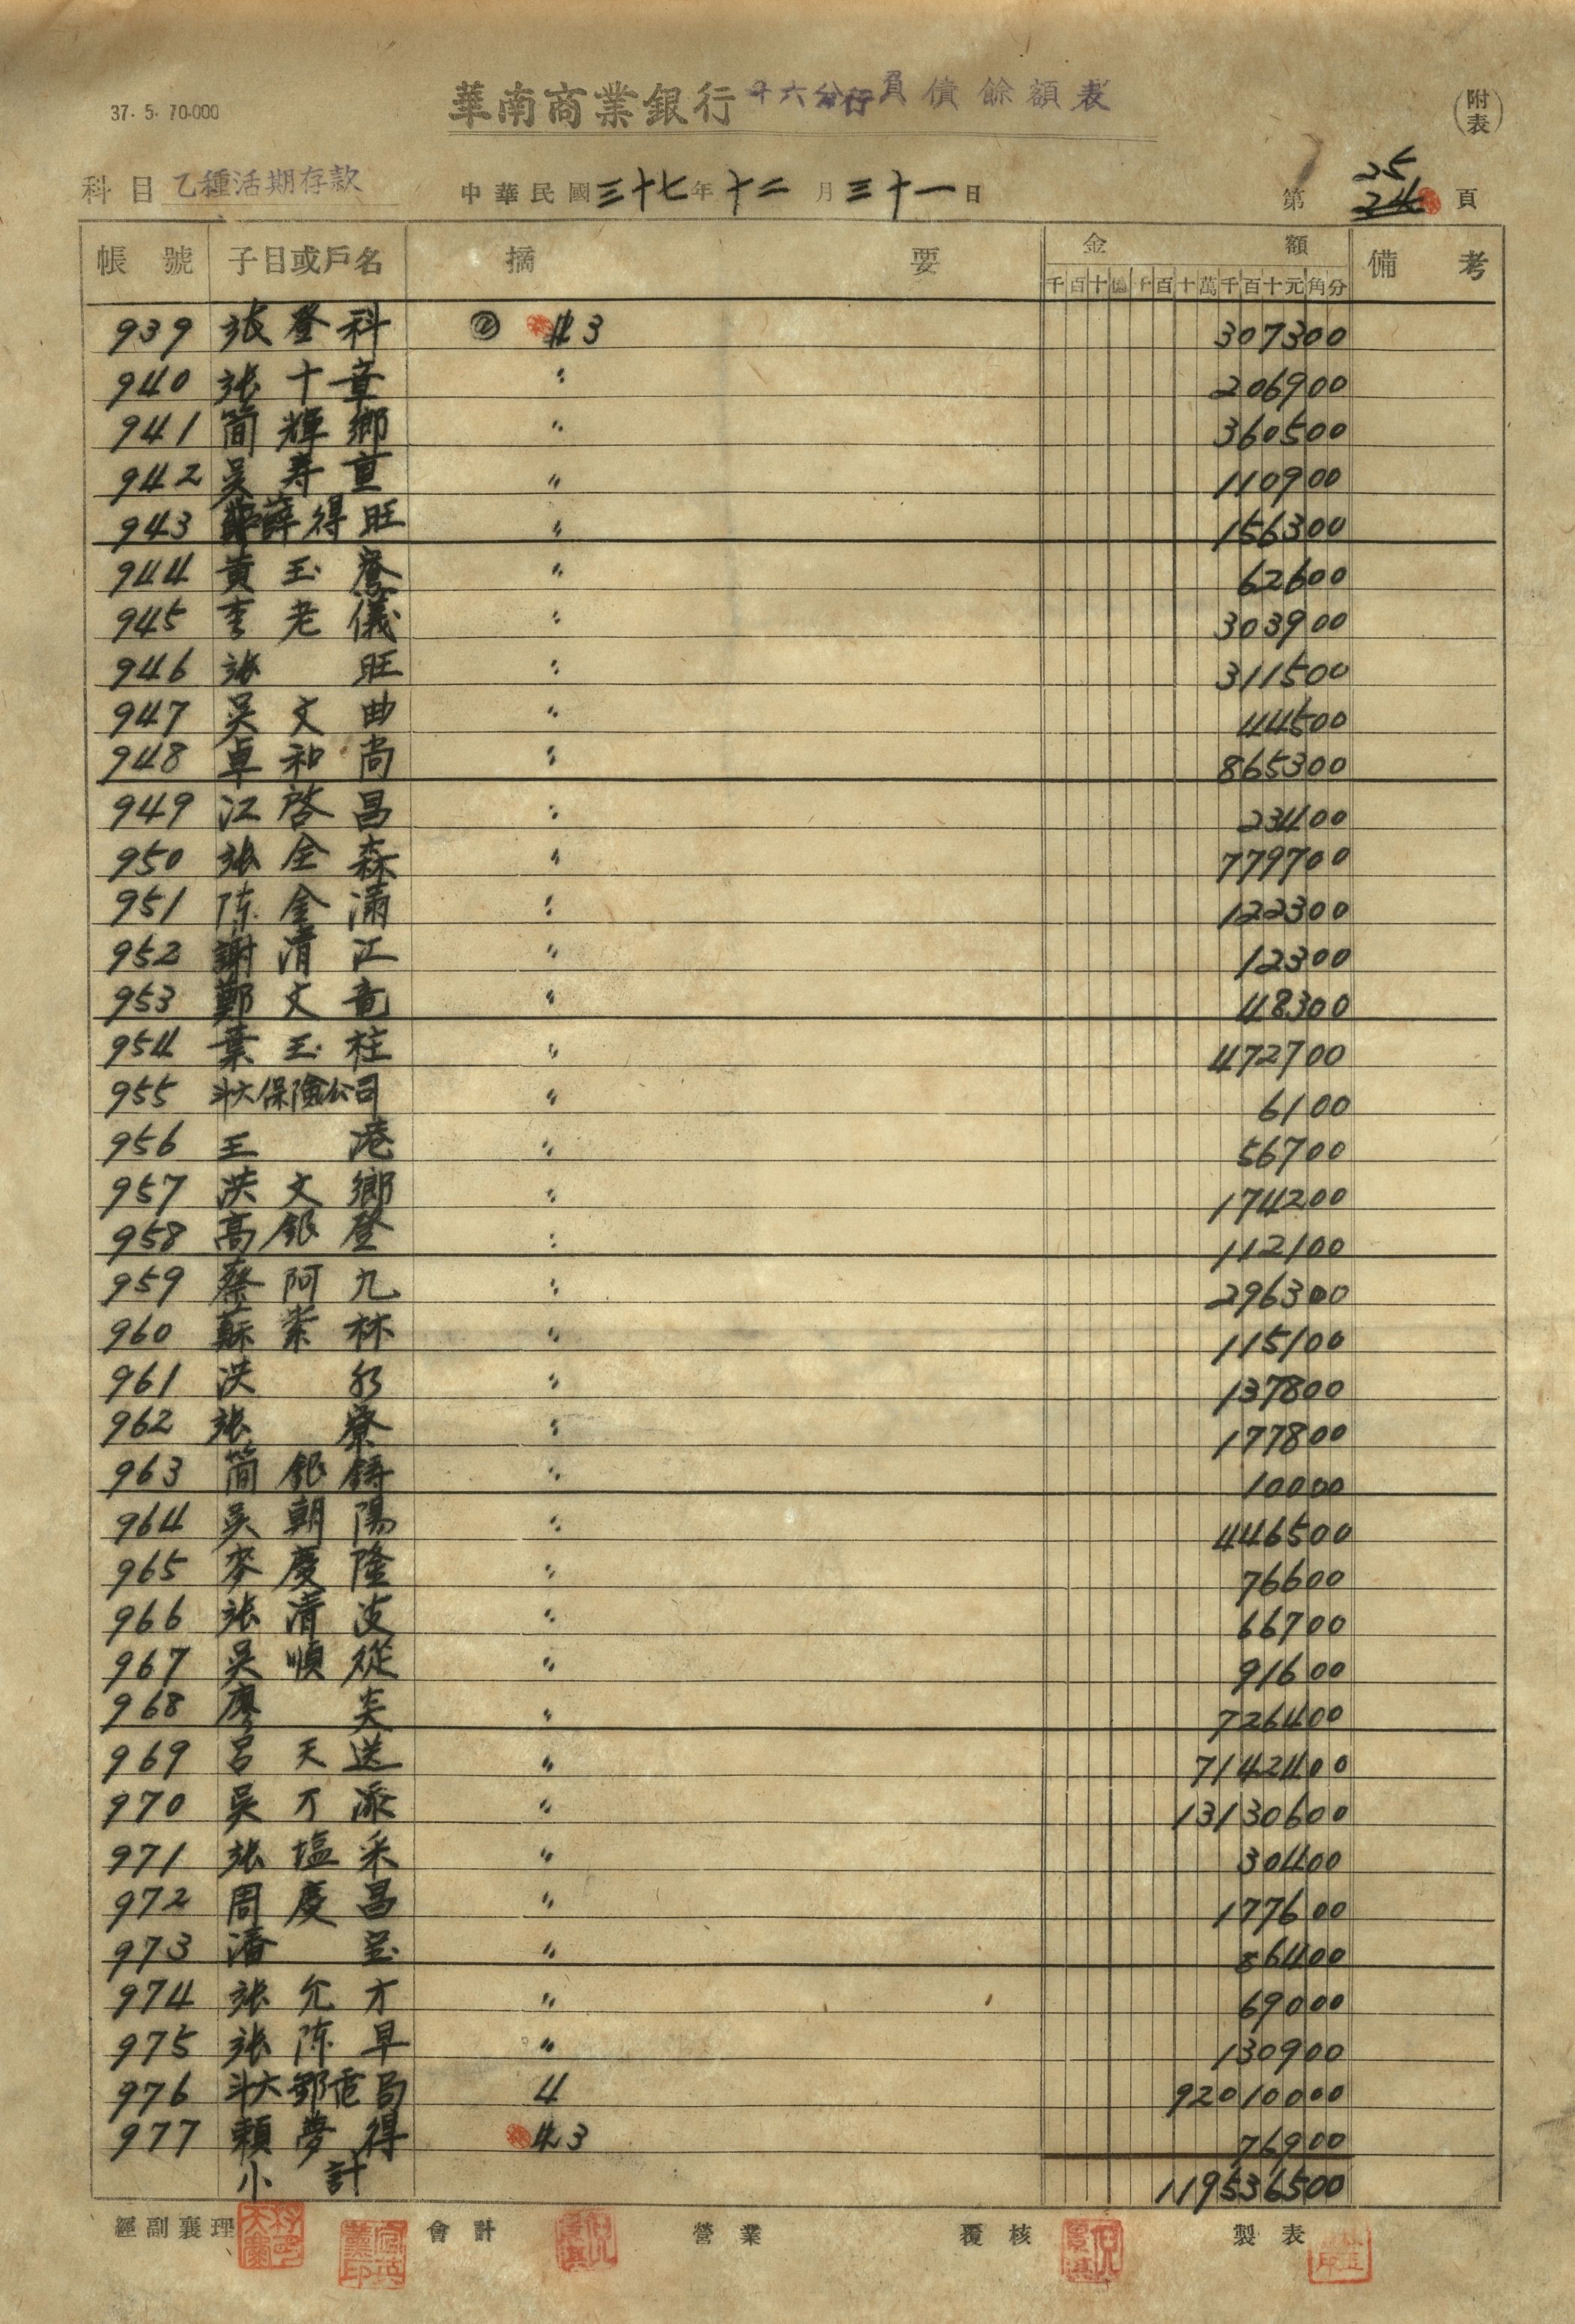 37. 5. 70.000
華南商業銀行 斗六分行 負債餘額表
(附表)
科目 乙種活期存款 中華民國三十七年十二月三十一日 第 25 24 頁
帳號 子目或戶名 摘要 金額 備考
千百十億千百十萬千百十元角分
939 張登科 3 307300
940 張十章 〃 206900
941 簡輝鄉 〃 360500
942 吳寿重 〃 110900
943 薛得旺 〃 156300
944 黃玉 〃 62600
945 李老儀 〃 303900
946 張旺 〃 311500
947 吳文曲 〃 44500
948 卓和尚 〃 865300
949 江啓昌 〃 23400
950 張全森 〃 779700
951 陈金滿 〃 122300
952 謝清江 〃 12300
953 鄭文竜 〃 48300
954 葉玉柱 〃 472700
955 斗六保險公司 〃 6100
956 王港 〃 56700
957 洪文鄉 〃 174200
958 高銀登 〃 112100
959 蔡阿九 〃 296300
960 蘇崇林 〃 115100
961 洪 〃 137800
962 張寮 〃 177800
963 簡銀鑄 〃 10000
964 吳朝陽 〃 446500
965 麥慶隆 〃 76600
966 張清波 〃 66700
967 吳順從 〃 91600
968 廖炎 〃 726400
969 呂天送 〃 7142400
970 吳万派 〃 13130600
971 張塩采 〃 30400
972 周慶昌 〃 177600
973 呈 〃 86400
974 張允才 〃 69000
975 張陈早 〃 130900
976 斗六郵電局 4 92010000
977 賴夢得 3 76900
小計 119536500
經副襄理 會計 營業 覆核 製表